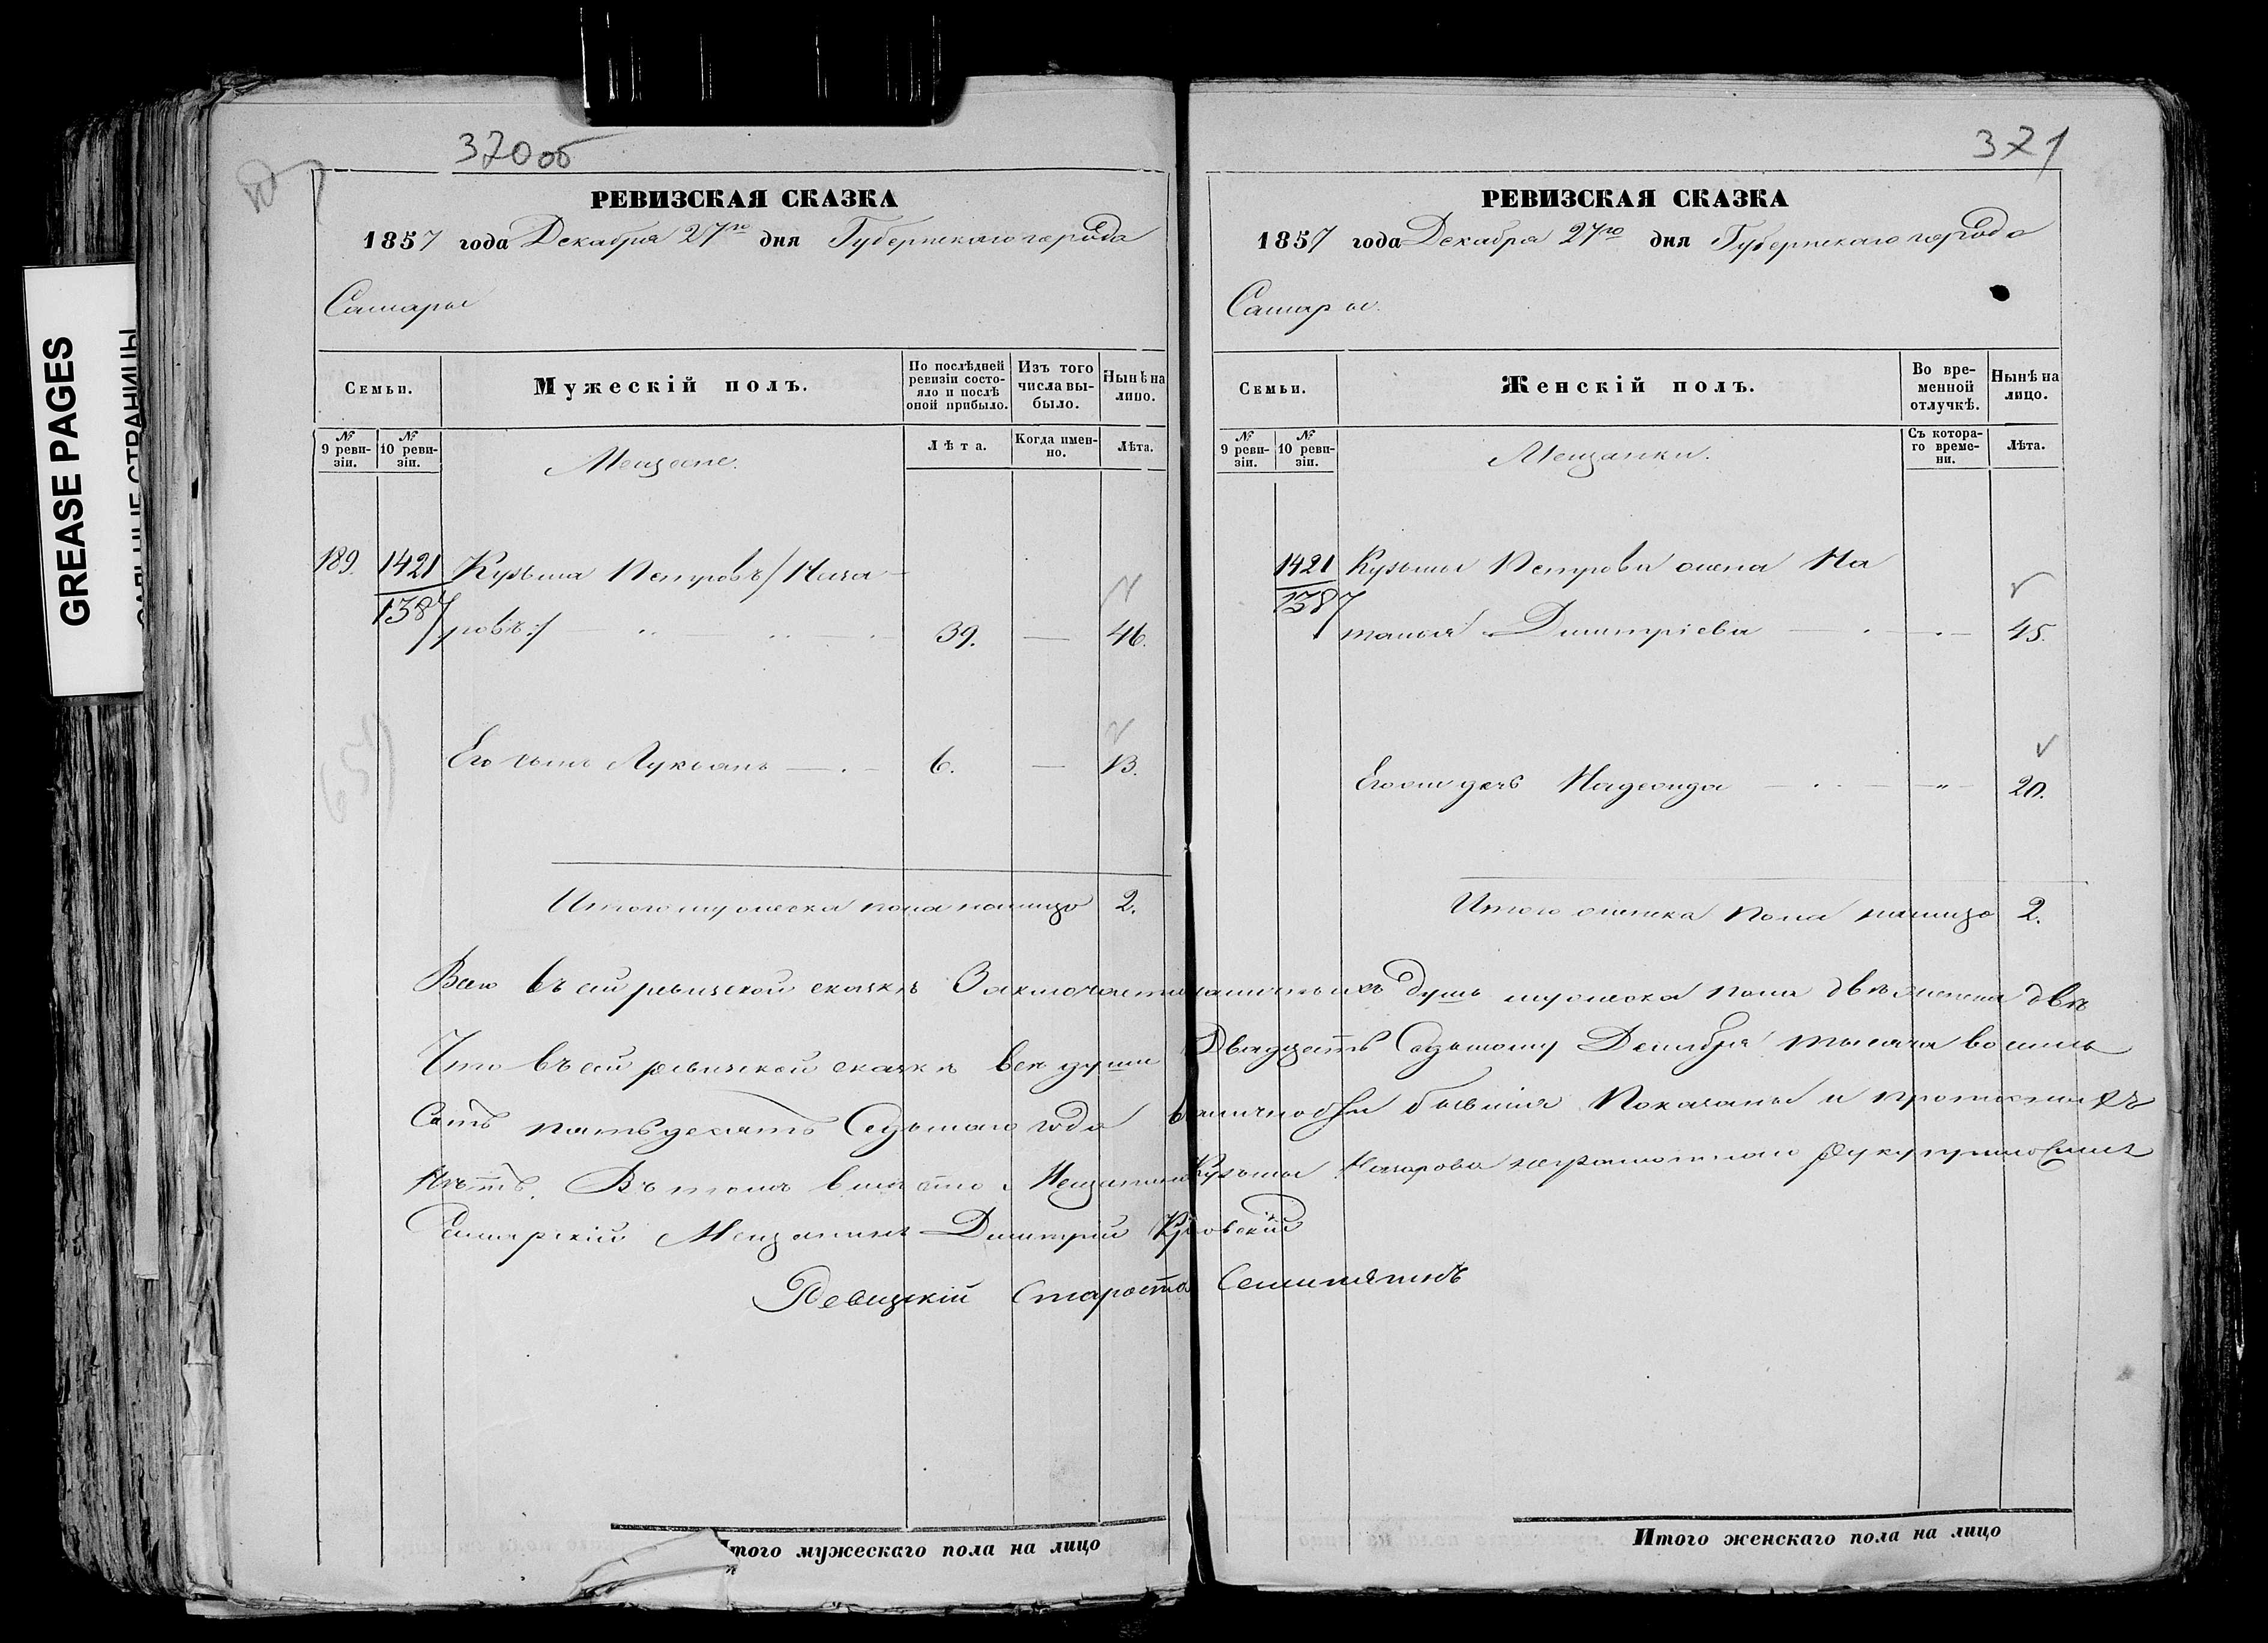 GREASE PAGES
САЛЬНЫЕ СТРАНИЦЫ
370 об
РЕВИЗСКАЯ СКАЗКА
1857 года Декабря 27го дня Губернскаго города
Самары
Семьи.
Мужескій полъ.
По послѣдней ревизіи состояло и послѣ оной прибыло.
Изъ того числа выбыло.
Нынѣ на лицо.
№ 9 ревизіи.
№ 10 ревизіи.
Мещане.
Лѣта.
Когда именно.
Лѣта.
189. 1421 Кузьма Петровъ /Наза-
1387 ровъ:/ 39. — 46.
Его сынъ Лукьянъ — 6. — 13.
Итого мужеска пола налицо 2.
371
РЕВИЗСКАЯ СКАЗКА
1857 года Декабря 27го дня Губернскаго города
Самары.
Семьи.
Женскій полъ.
Во временной отлучкѣ.
Нынѣ на лицо.
№ 9 ревизіи.
№ 10 ревизіи.
Мещанки.
Съ котораго времени.
Лѣта.
1421 Кузьмы Петрова жена На
1387 талья Димитріева — 45.
Егоже дочь Надежда — " — 20.
Итого женска пола налицо 2.
Всего въ сей ревизской сказкѣ Заключается наличныхъ душъ мужеска пола двѣ женска двѣ
Что въ сей ревизской сказкѣ всѣ души Двадцать Седьмому Декабря тысяча восемь
Сотъ пятьдесятъ Седьмаго года вналичности бывшія Показаны и прописныхъ
Нѣтъ. Въ томъ вмѣсто Мещанина Кузьмы Назарова неграмотнаго руку приложилъ
Самарскій Мещанинъ Димитрій
Ревизскій Староста
Итого мужескаго пола на лицо
Итого женскаго пола на лицо